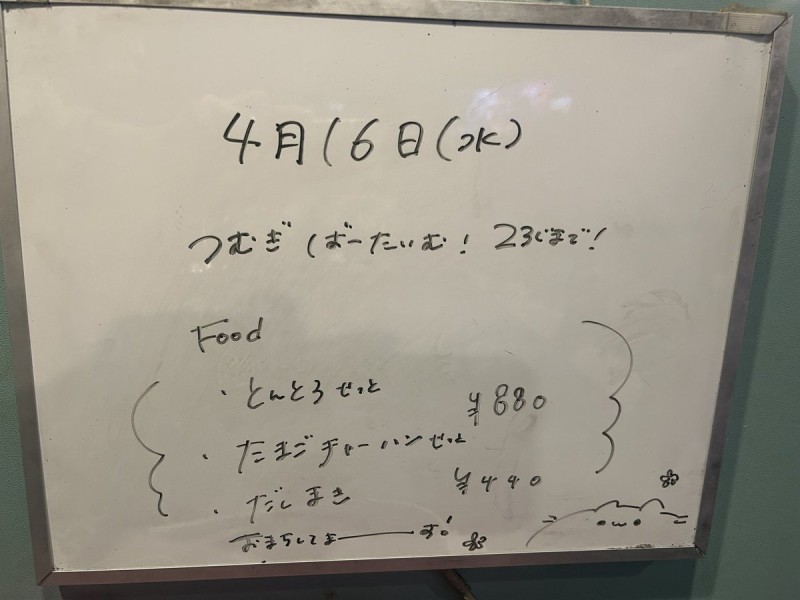 4月16日(水)
つむぎ ばーたいむ! 23じまで!
Food
・とんとろせっと ¥880
・たまごチャーハンせっと
・だしまき ¥440
おまちしてまーす!